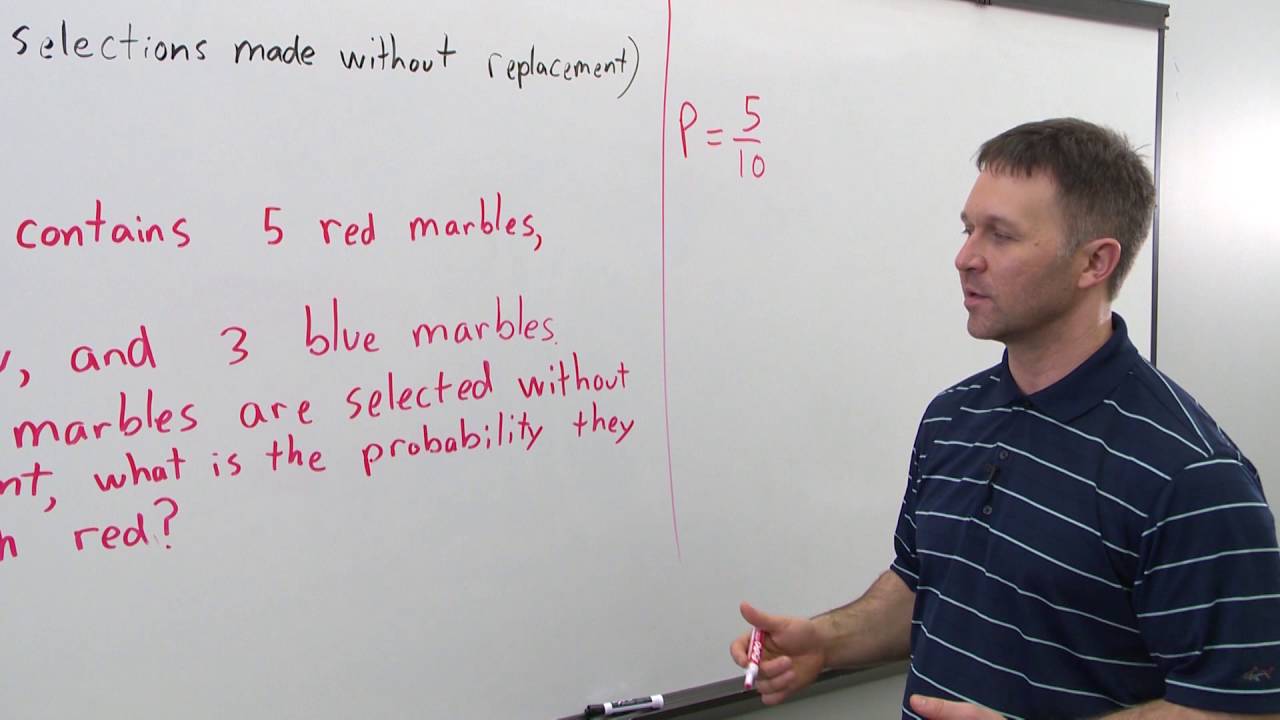 selections made without replacement)
contains 5 red marbles,
, and 3 blue marbles.
marbles are selected without
nt, what is the probability they
h red?
P = 5/10
EXPO